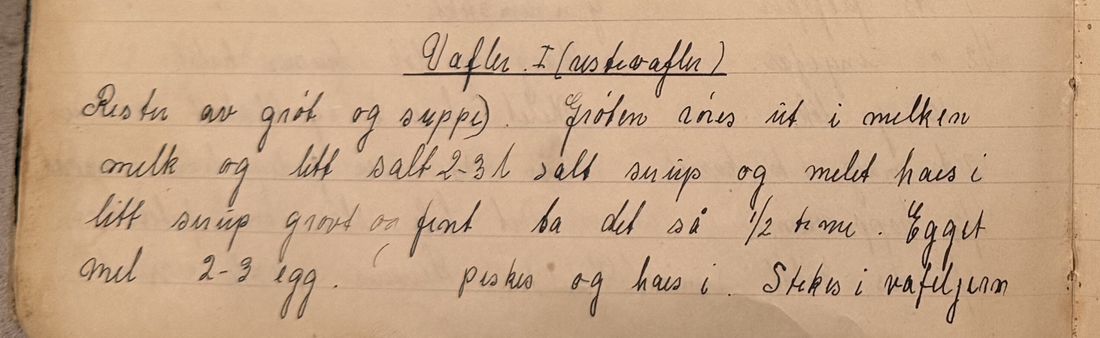 Vafler. I (restevafler)
Rester av grøt og suppe). Grøten røres ut i melken
melk og litt salt 2-3 l salt sirup og melet haes i
litt sirup grovt og fint la det så 1/2 time. Egget
mel 2-3 egg. peskes og haes i. Stekes i vafeljern